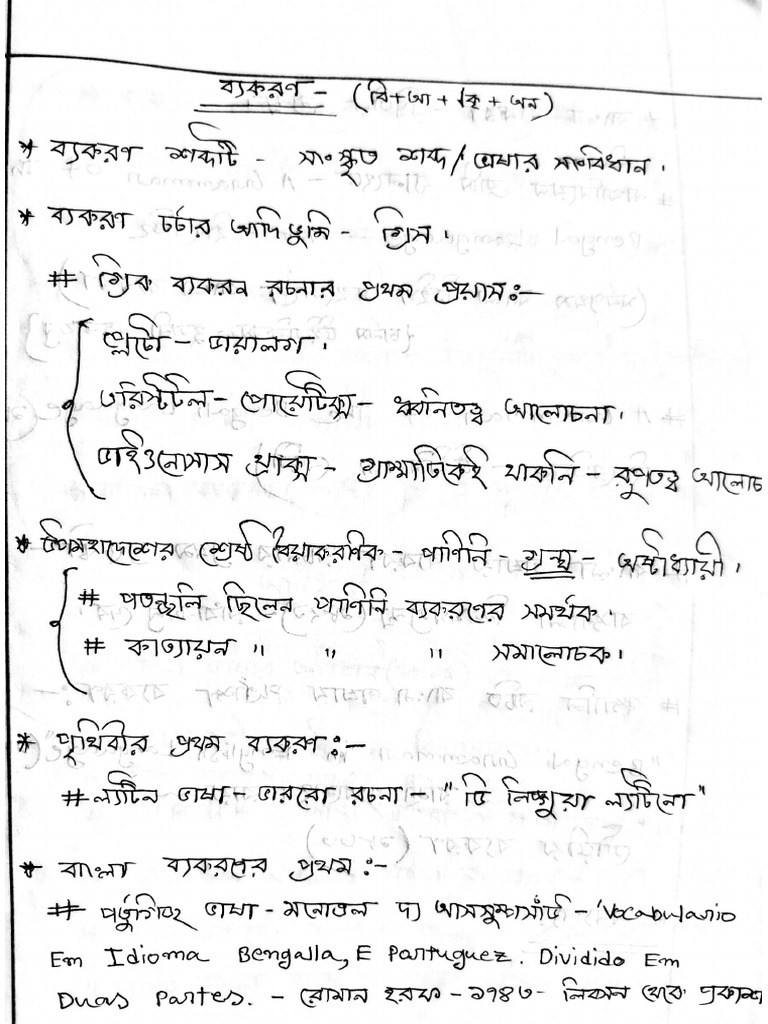 ব্যকরণ - (বি+আ+√কৃ+অন)
* ব্যকরণ শব্দটি - সাংস্কৃত শব্দ/ভাষার সংবিধান।
* ব্যকরণ চর্চার আদিভুমি - গ্রিস।
# গ্রিক ব্যকরন রচনার প্রথম প্রয়াসঃ-
প্লেটো - ডায়ালগ।
এরিস্টটল - পোয়েটিক্স - ধ্বনিতত্ব আলোচনা।
ডাইওনোসাস থ্রাক্স - গ্রাম্মাটিকেই থাকনি - রুপতত্ব আলোচ
* উপমহাদেশের শ্রেষ্ঠ বৈয়াকরণিক - পাণিনি - গ্রন্থ - অষ্টাধ্যায়ী।
# পতঞ্জলি ছিলেন পাণিনি ব্যকরণের সমর্থক।
# কাত্যায়ন " " " সমালোচক।
* পৃথিবীর প্রথম ব্যকরণ :-
# ল্যটিন ভাষা - ভাররো রচনা - "ডি লিঙ্গুয়া ল্যটিনো"
* বাংলা ব্যকরণের প্রথম :-
# পর্তুগিজ ভাষা - মনোএল দ্য আসসুম্পসাঁউ - 'Vocabulario
Em Idioma Bengalla, E Partuguez. Dividido Em
Duas Partes. - রোমান হরফ - ১৭৪৩ - লিসবন থেকে প্রকাশ